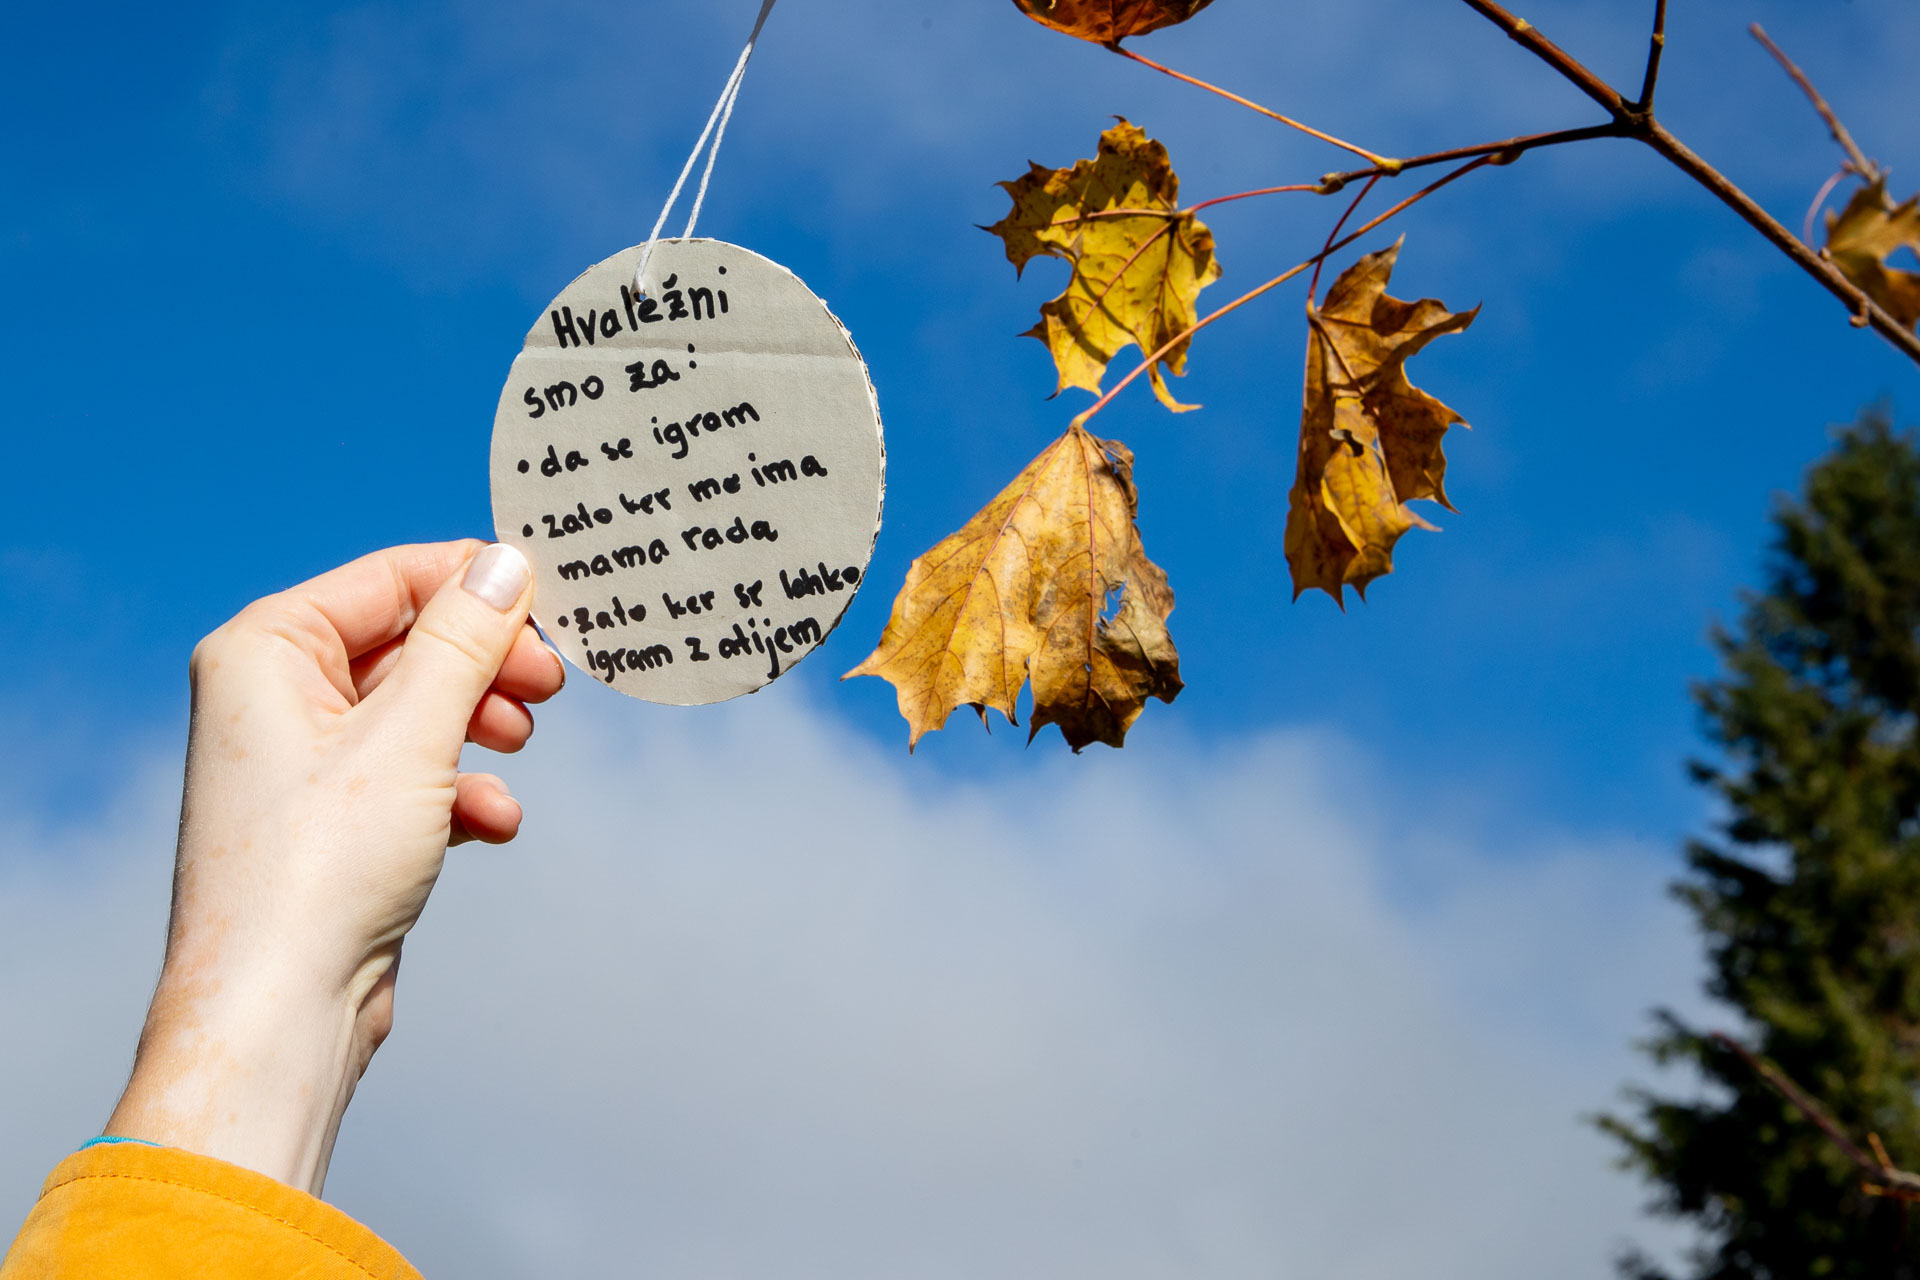 Hvaležni
smo za:
• da se igram
• zato ker me ima
mama rada
• zato ker se lahko
igram z atijem